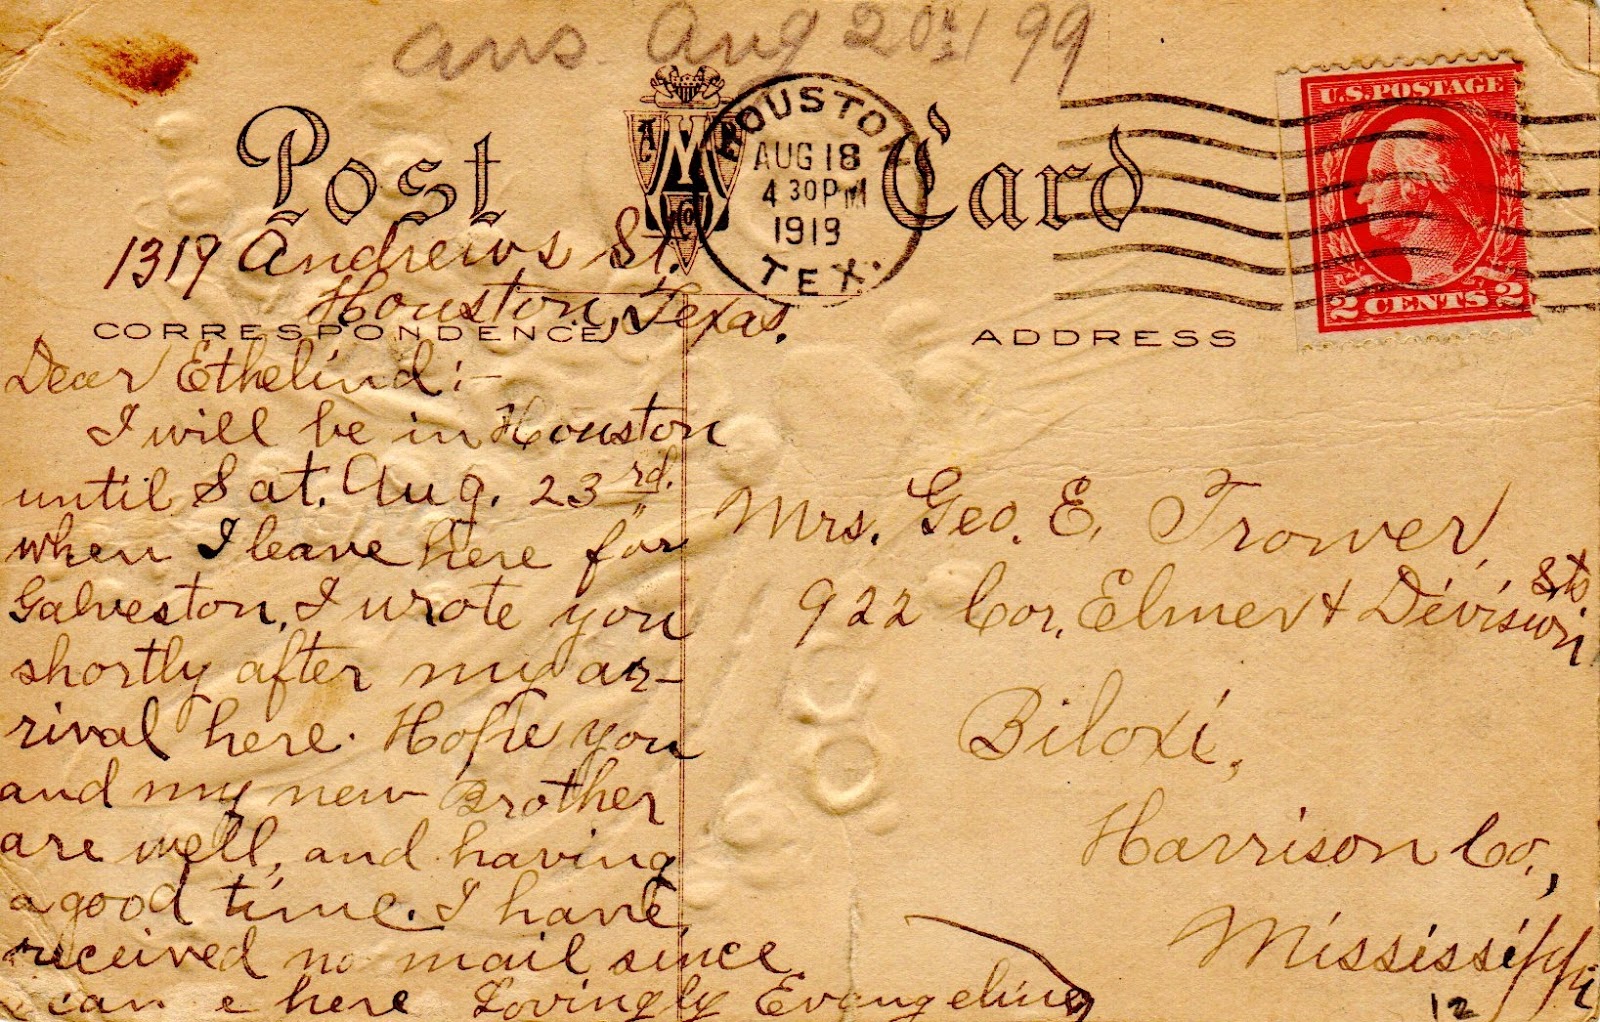 ans. Aug 20th 1 99
Post Card
A M P Co
HOUSTON
AUG 18
4 30 PM
1919
TEX.
U.S. POSTAGE
2 CENTS 2
1319 Andrews St.
Houston, Texas.
CORRESPONDENCE
ADDRESS
Dear Ethelind:-
I will be in Houston
until Sat. Aug. 23rd.
when I leave here for
Galveston. I wrote you
shortly after my ar-
rival here. Hope you
and my new Brother
are well, and having
a good time. I have
received no mail since
I came here Lovingly Evangeline
Mrs. Geo. E. Trower,
922 Cor. Elmer & Division Sts
Biloxi,
Harrison Co.,
Mississippi
12